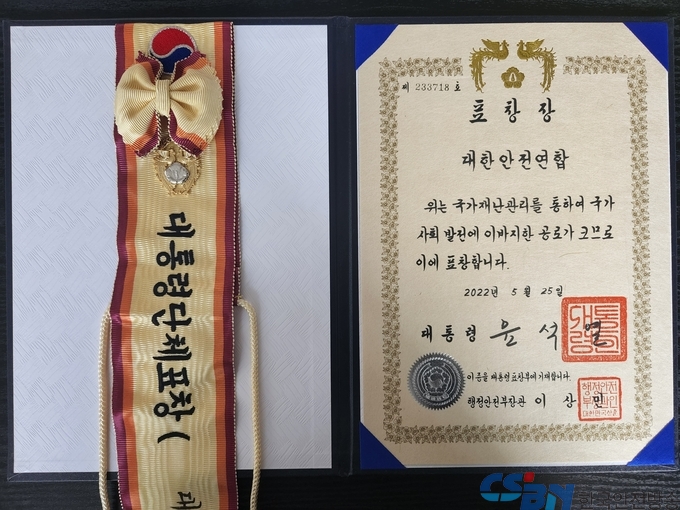 대통령단체표창(
대
제 233718 호
표창장
대한안전연합
위는 국가재난관리를 통하여 국가
사회 발전에 이바지한 공로가 크므로
이에 표창합니다.
2022년 5월 25일
대통령 윤석열
대통령인
이 증을 대통령 표창부에 기재합니다.
행정안전부장관 이상민
행정안전
부장관인